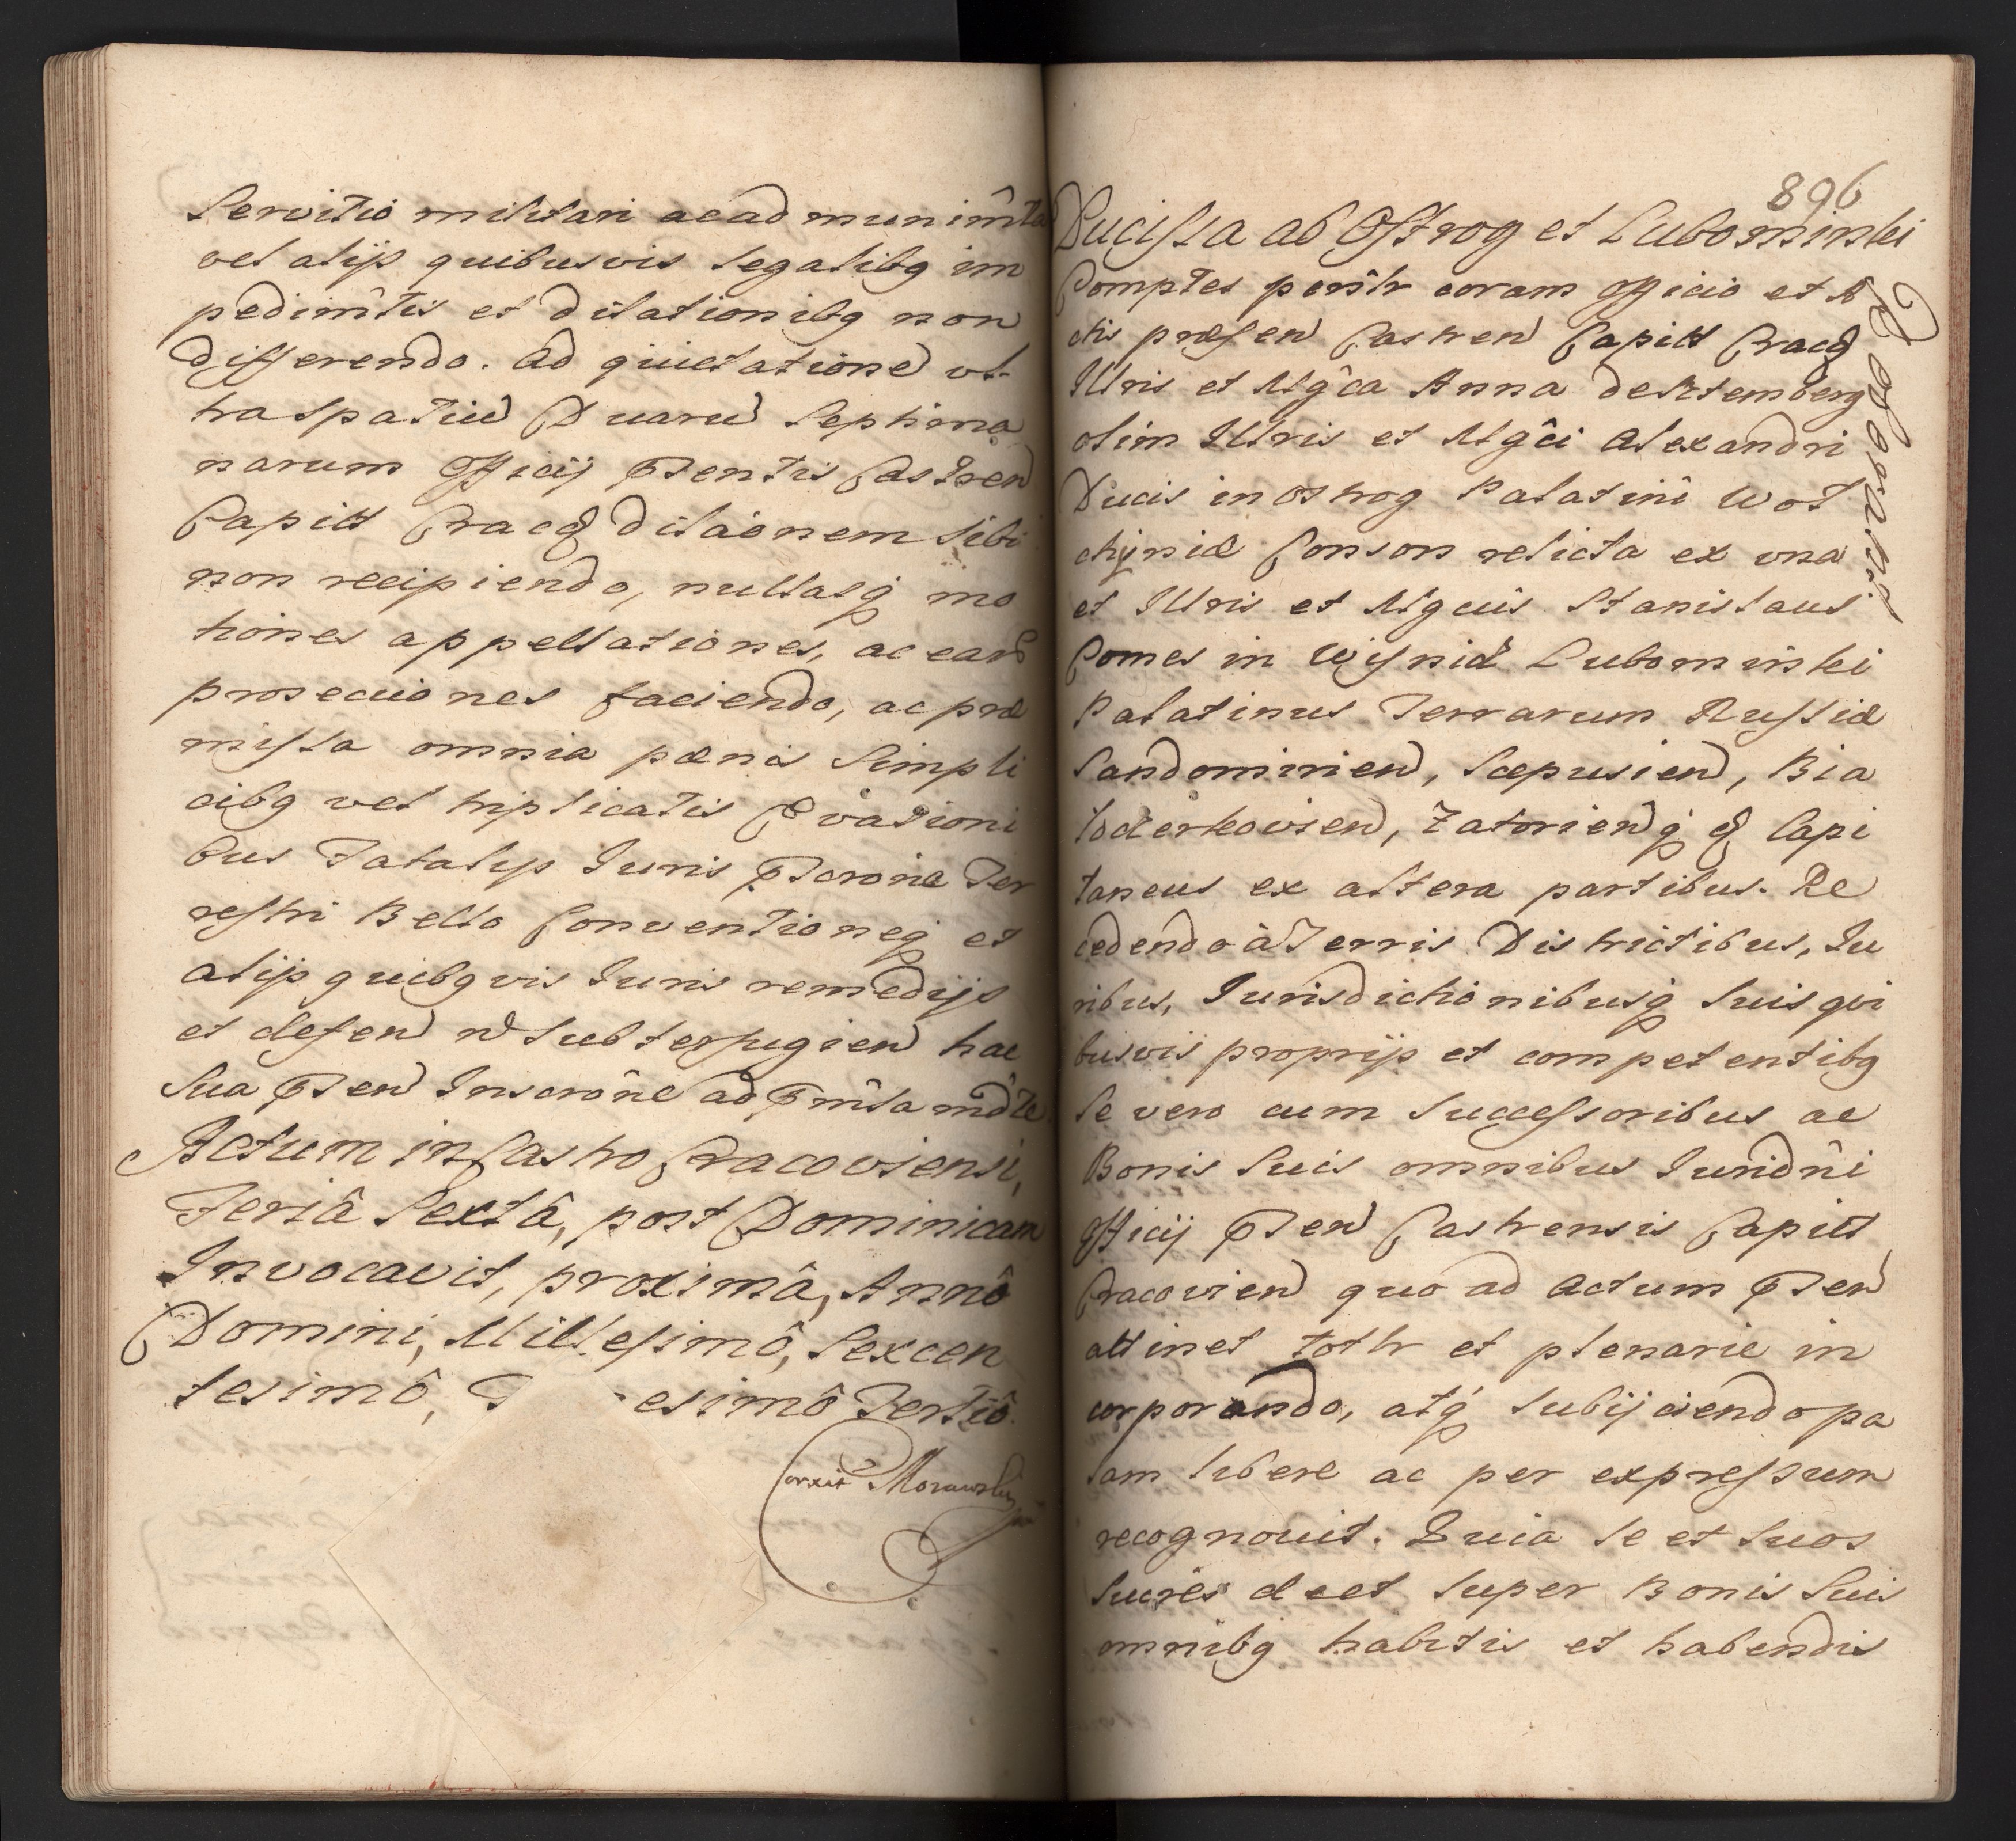 Servitio militari ac ad munimta
vel alijs quibusvis legalibq im
pedimtis et dilationibq non
differendo. Ad quietatione vl-
tra spatiu Duaru Septima
narum Officij Pntis Castren
Capitt Crac dilaonem sibi
non recipiendo, nullasq mo
tiones appellationes, ac earu
prosecuiones faciendo, ac præ
missa omnia pænis simpli
cibq vel triplicatis Evasioni
bus Fatalijs Juris Ter
restri Bello Conventioneq et
alijs quibqvis Juris remedijs
et defen subterfugien hac
sua Pten Inscrône ad
Actum in Castro Cracoviensi,
Feriâ Sextâ, post Dominicam
Invocavit, proximâ, Annô
Domini, Millesimô, Sexcen
tesimô, T esimô Tertiô
Correxit Morawsky
896
Ducissa ab Ostrog et Lubomirski
Comptes psnlr coram Officio et A
ctis præsen Castren Capitt Crac
Illris et Mgca Anna de Sztemberg
olim Illris et Mgci Alexandri
Ducis in Ostrog Palatini Wol
chyniæ Conson relicta ex vna
et Illris et Mgcus Stanislaus
Comes in Wisniæ Lubomirski
Palatinus Terrarum Russiæ
Sandomirien, Scepusien, Bia
locerkowien, Zatorienq & Capi
taneus ex altera partibus. Re
cedendo à Terris Districtibus, Ju
ribus, Jurisdictionibusq suis qvi
busvis proprijs et competentibq
se vero cum successoribus ac
Bonis suis omnibus Juridni
Officij Pten Castrensis Capitt
Cracovien quo ad Actum Pten
attinet totlr et plenarie in
corporando, atq subijciendo pa
lam libere ac per expressum
recognouit. Quia se et suos
sucres de et super Bonis suis
omnibq habitis et habendis